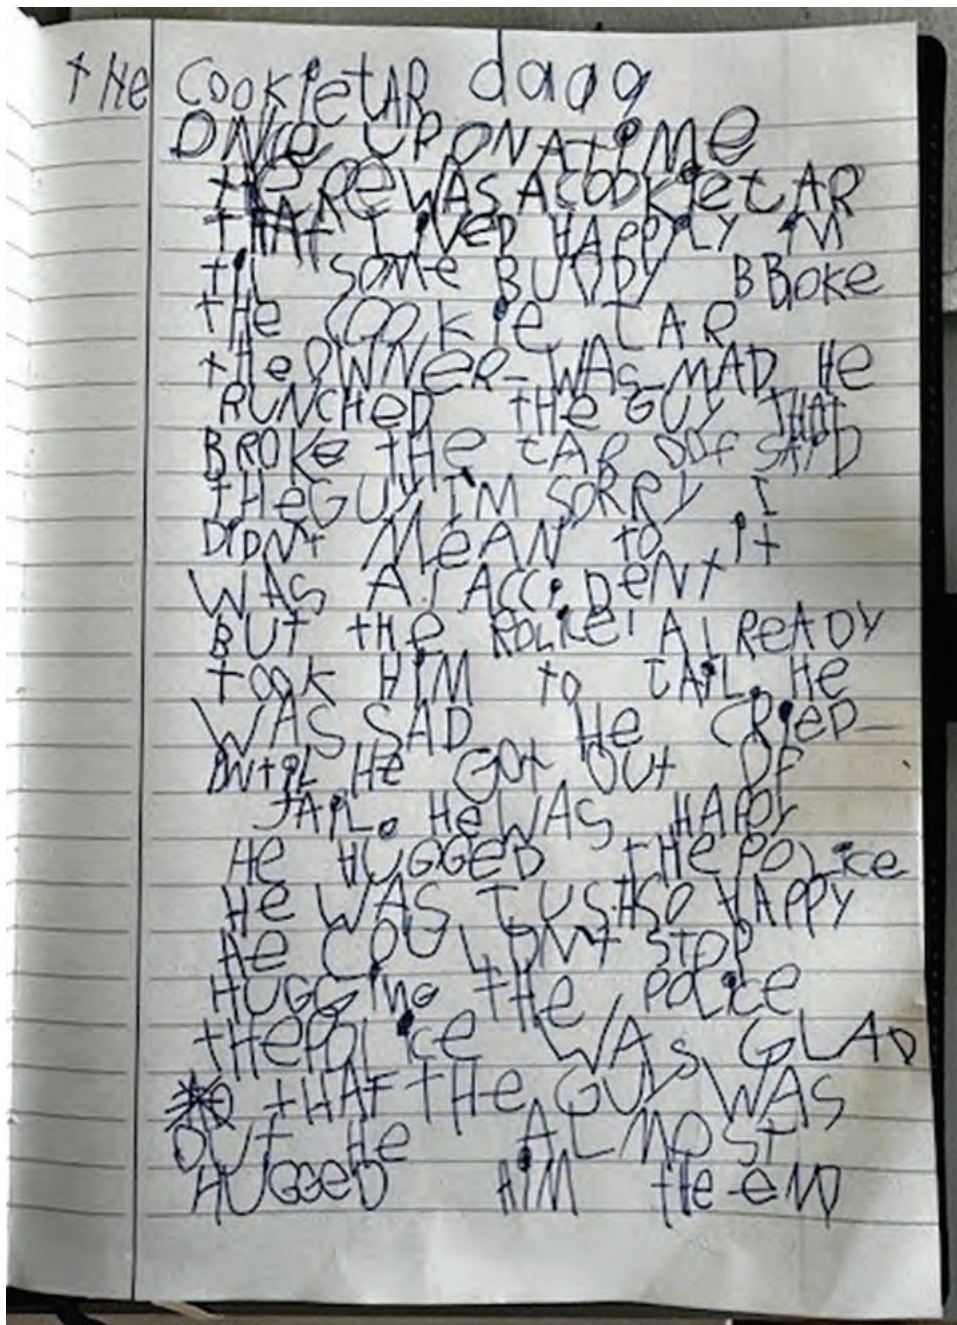 tHe COOKIetAR daaq
ONCe UPON A tiMe
tHeRe WAS A COOKIetAR
tHAt LIVeD HAPPILY
tIL SOMe BUDDY BBROKe
tHe COOKIe tAR
tHe OWNeR-WAS-MAD He
PUNCHeD tHe GUY tHAt
BROKe tHe tAR SAID
tHe GUY I'M SORRY I
DIDNt MeAN tO it
WAS AN ACCIDeNt
BUT tHe POLICe ALReADY
tOOK HIM tO JAIL. He
WAS SAD He CRIeD-
UNtIL He GOt OUt OF
JAIL. He WAS HAPPY
He HUGGeD tHe POLICe
He WAS JUSt SO HAPPY
He COULDNt StOP
HUGGING tHe POLICe
tHe POLICe WAS GLAD
tHAT tHe GUY WAS
OUt He ALMOST
HUGGeD HIM tHe-eND